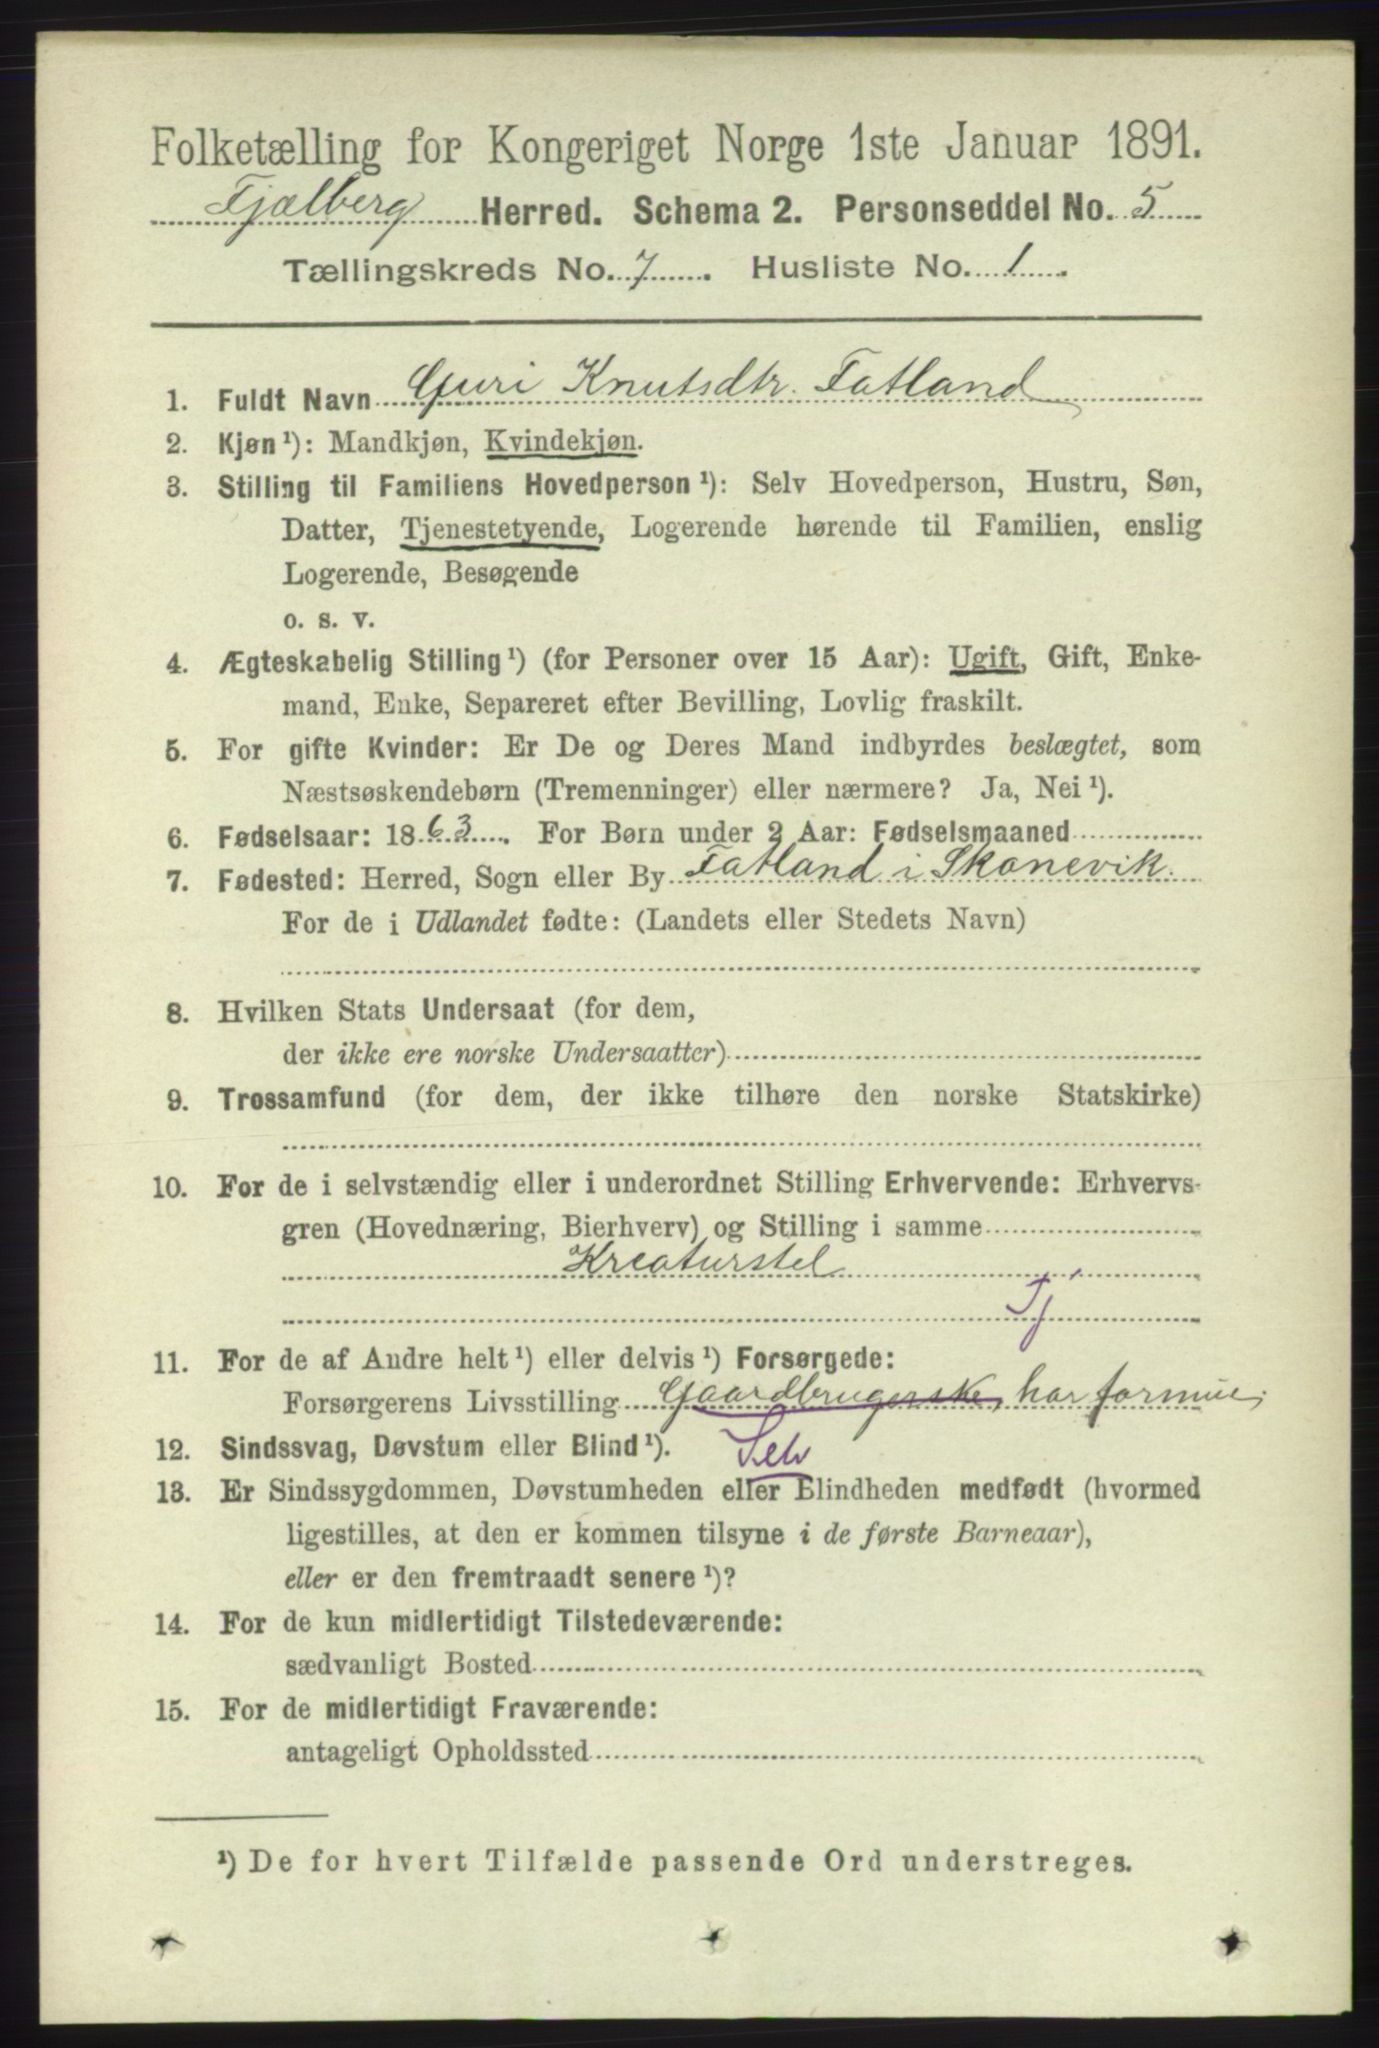 Folketælling for Kongeriget Norge 1ste Januar 1891.
Fjælberg Herred. Schema 2. Personseddel No. 5
Tællingskreds No. 7. Husliste No. 1.
1. Fuldt Navn Guri Knutsdtr. Fatland
2. Kjøn¹): Mandkjøn, Kvindekjøn.
3. Stilling til Familiens Hovedperson¹): Selv Hovedperson, Hustru, Søn,
Datter, Tjenestetyende, Logerende hørende til Familien, enslig
Logerende, Besøgende
o. s. v.
4. Ægteskabelig Stilling¹) (for Personer over 15 Aar): Ugift, Gift, Enke-
mand, Enke, Separeret efter Bevilling, Lovlig fraskilt.
5. For gifte Kvinder: Er De og Deres Mand indbyrdes beslægtet, som
Næstsøskendebørn (Tremenninger) eller nærmere? Ja, Nei¹).
6. Fødselsaar: 1863. For Børn under 2 Aar: Fødselsmaaned
7. Fødested: Herred, Sogn eller By Fatland i Skonevik.
For de i Udlandet fødte: (Landets eller Stedets Navn)
8. Hvilken Stats Undersaat (for dem,
der ikke ere norske Undersaatter)
9. Trossamfund (for dem, der ikke tilhøre den norske Statskirke)
10. For de i selvstændig eller i underordnet Stilling Erhvervende: Erhvervs-
gren (Hovednæring, Bierhverv) og Stilling i samme
Kreaturstel
Tj
11. For de af Andre helt¹) eller delvis¹) Forsørgede:
Forsørgerens Livsstilling Gaardbrugerske, har formue;
12. Sindssvag, Døvstum eller Blind¹). Selv
13. Er Sindssygdommen, Døvstumheden eller Blindheden medfødt (hvormed
ligestilles, at den er kommen tilsyne i de første Barneaar),
eller er den fremtraadt senere¹)?
14. For de kun midlertidigt Tilstedeværende:
sædvanligt Bosted
15. For de midlertidigt Fraværende:
antageligt Opholdssted
¹) De for hvert Tilfælde passende Ord understreges.